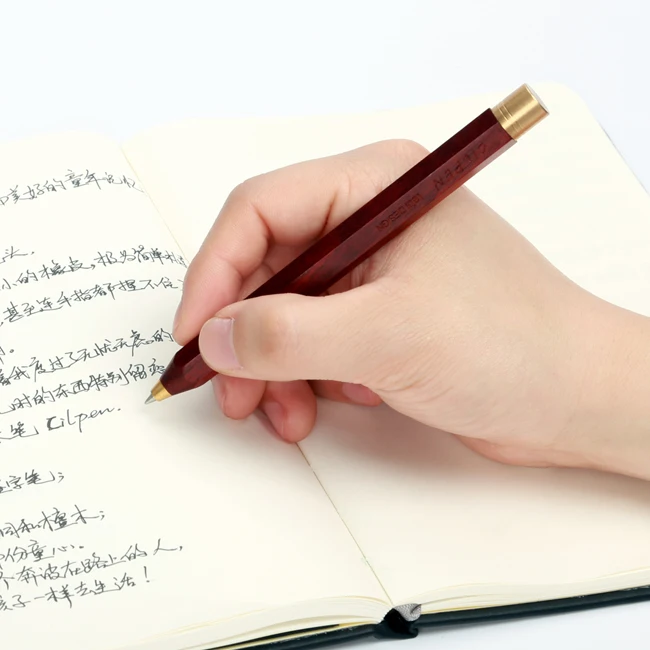 美好的童年记忆
头.
小的橡皮,极为简单
甚至连手指都握不住
我度过了无忧无虑的
时的东西特别留恋
笔 Cilpen.
字笔;
同和檀木;
份童心.
奔波在路上的人,
孩子一样去生活!
CILPEN